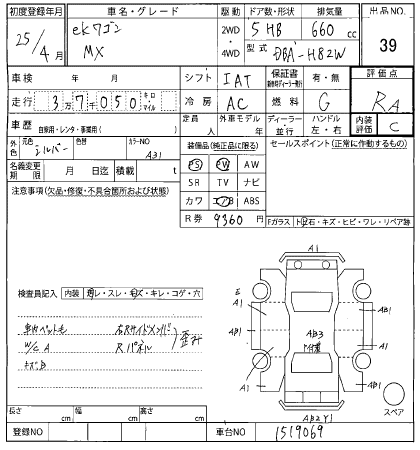 初度登録年月 車名・グレード 駆動 ドア数・形状 排気量 出品NO.
25/4月 ekワゴン MX 2WD 4WD 5HB 660cc 39
型式 DBA-H82W
車検 年 月 シフト IAT 保証書 有・無 評価点
走行 3万7千050 キロ マイル 冷房 AC 燃料 G RA
車歴 自家用・レンタ・事業用( ) 定員 人 外車モデル 年 ディーラー 並行 ハンドル 左・右 内装評価 C
外色 元色 シルバー 色替 カラーNO A31 装備品(純正品に限る) セールスポイント(正常に作動するもの)
PS PW AW
名義変更期限 月 日迄 積載 t SR TV ナビ
注意事項(欠品・修復・不具合箇所および状態) カワ エアB ABS
R券 9360円 Fガラス トビ石・キズ・ヒビ・ワレ・リペア跡
A1
検査員記入 内装 ヨレ・スレ・キズ・キレ・コゲ・穴
E A1 AB1
車内ペット毛 右Rサイドメンバ 歪み AB1 AB3 AB1
W/C A Rパネル A1
キズB A1 AB1
スペア
長さ cm 幅 cm 高さ cm AB2 Y1
登録NO 車台NO 1519069